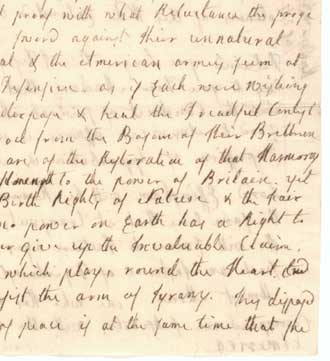 proof with what Reluctance the proge
sword against their unnatural
al & the American armies seem at
Defensive as if Each were Wishing
& heal the Dreadful Contest
from the Bosom of their Brethren
are of the Restoration of that Harmony
Strength to the power of Britain. yet
Birth Rights of Nature & the
no power on Earth has a Right to
er give up the Invaluable Claim.
which plays round the Heart, And
sist the arm of Tyrany. This dispos
of peace is at the same time that the